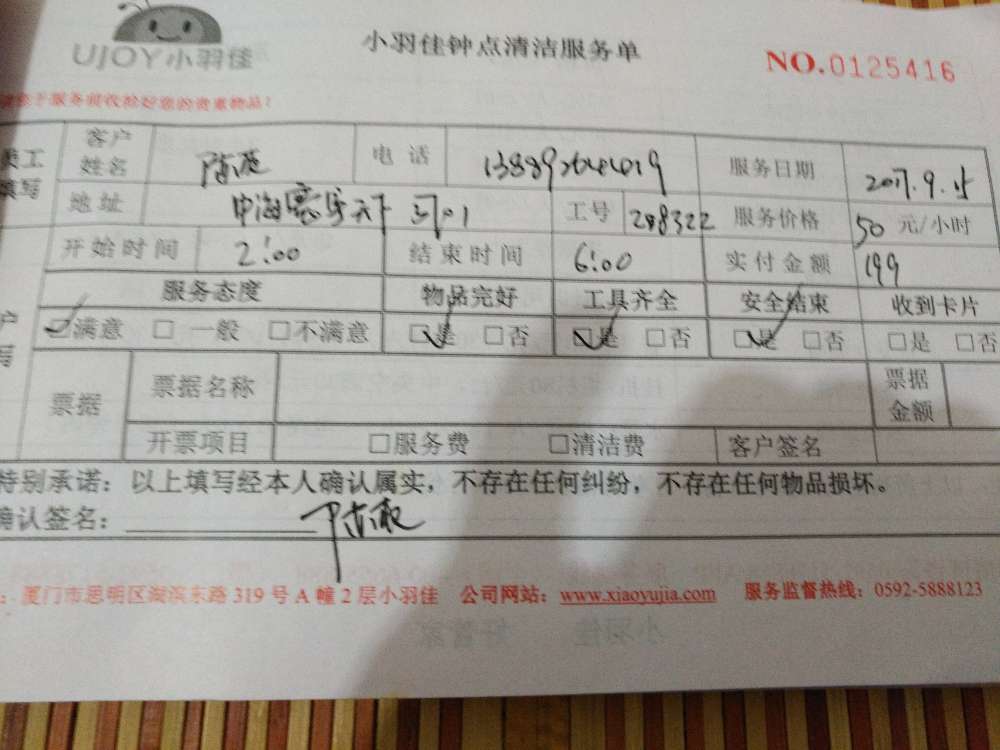 UJOY小羽佳
小羽佳钟点清洁服务单
NO.0125416
于服务前收拾好您的贵重物品！
员工填写 客户姓名 陈 电话 服务日期 2017.9.15
地址 中海寰宇天下 工号 288322 服务价格 50 元/小时
开始时间 2:00 结束时间 6:00 实付金额 199
服务态度 物品完好 工具齐全 安全结束 收到卡片
户写 ☑满意 □一般 □不满意 ☑是 □否 ☑是 □否 ☑是 □否 □是 □否
票据 票据名称 票据金额
开票项目 □服务费 □清洁费 客户签名
特别承诺：以上填写经本人确认属实，不存在任何纠纷，不存在任何物品损坏。
确认签名： 陈
：厦门市思明区湖滨东路 319 号 A 幢 2 层小羽佳 公司网站：www.xiaoyujia.com 服务监督热线：0592-5888123